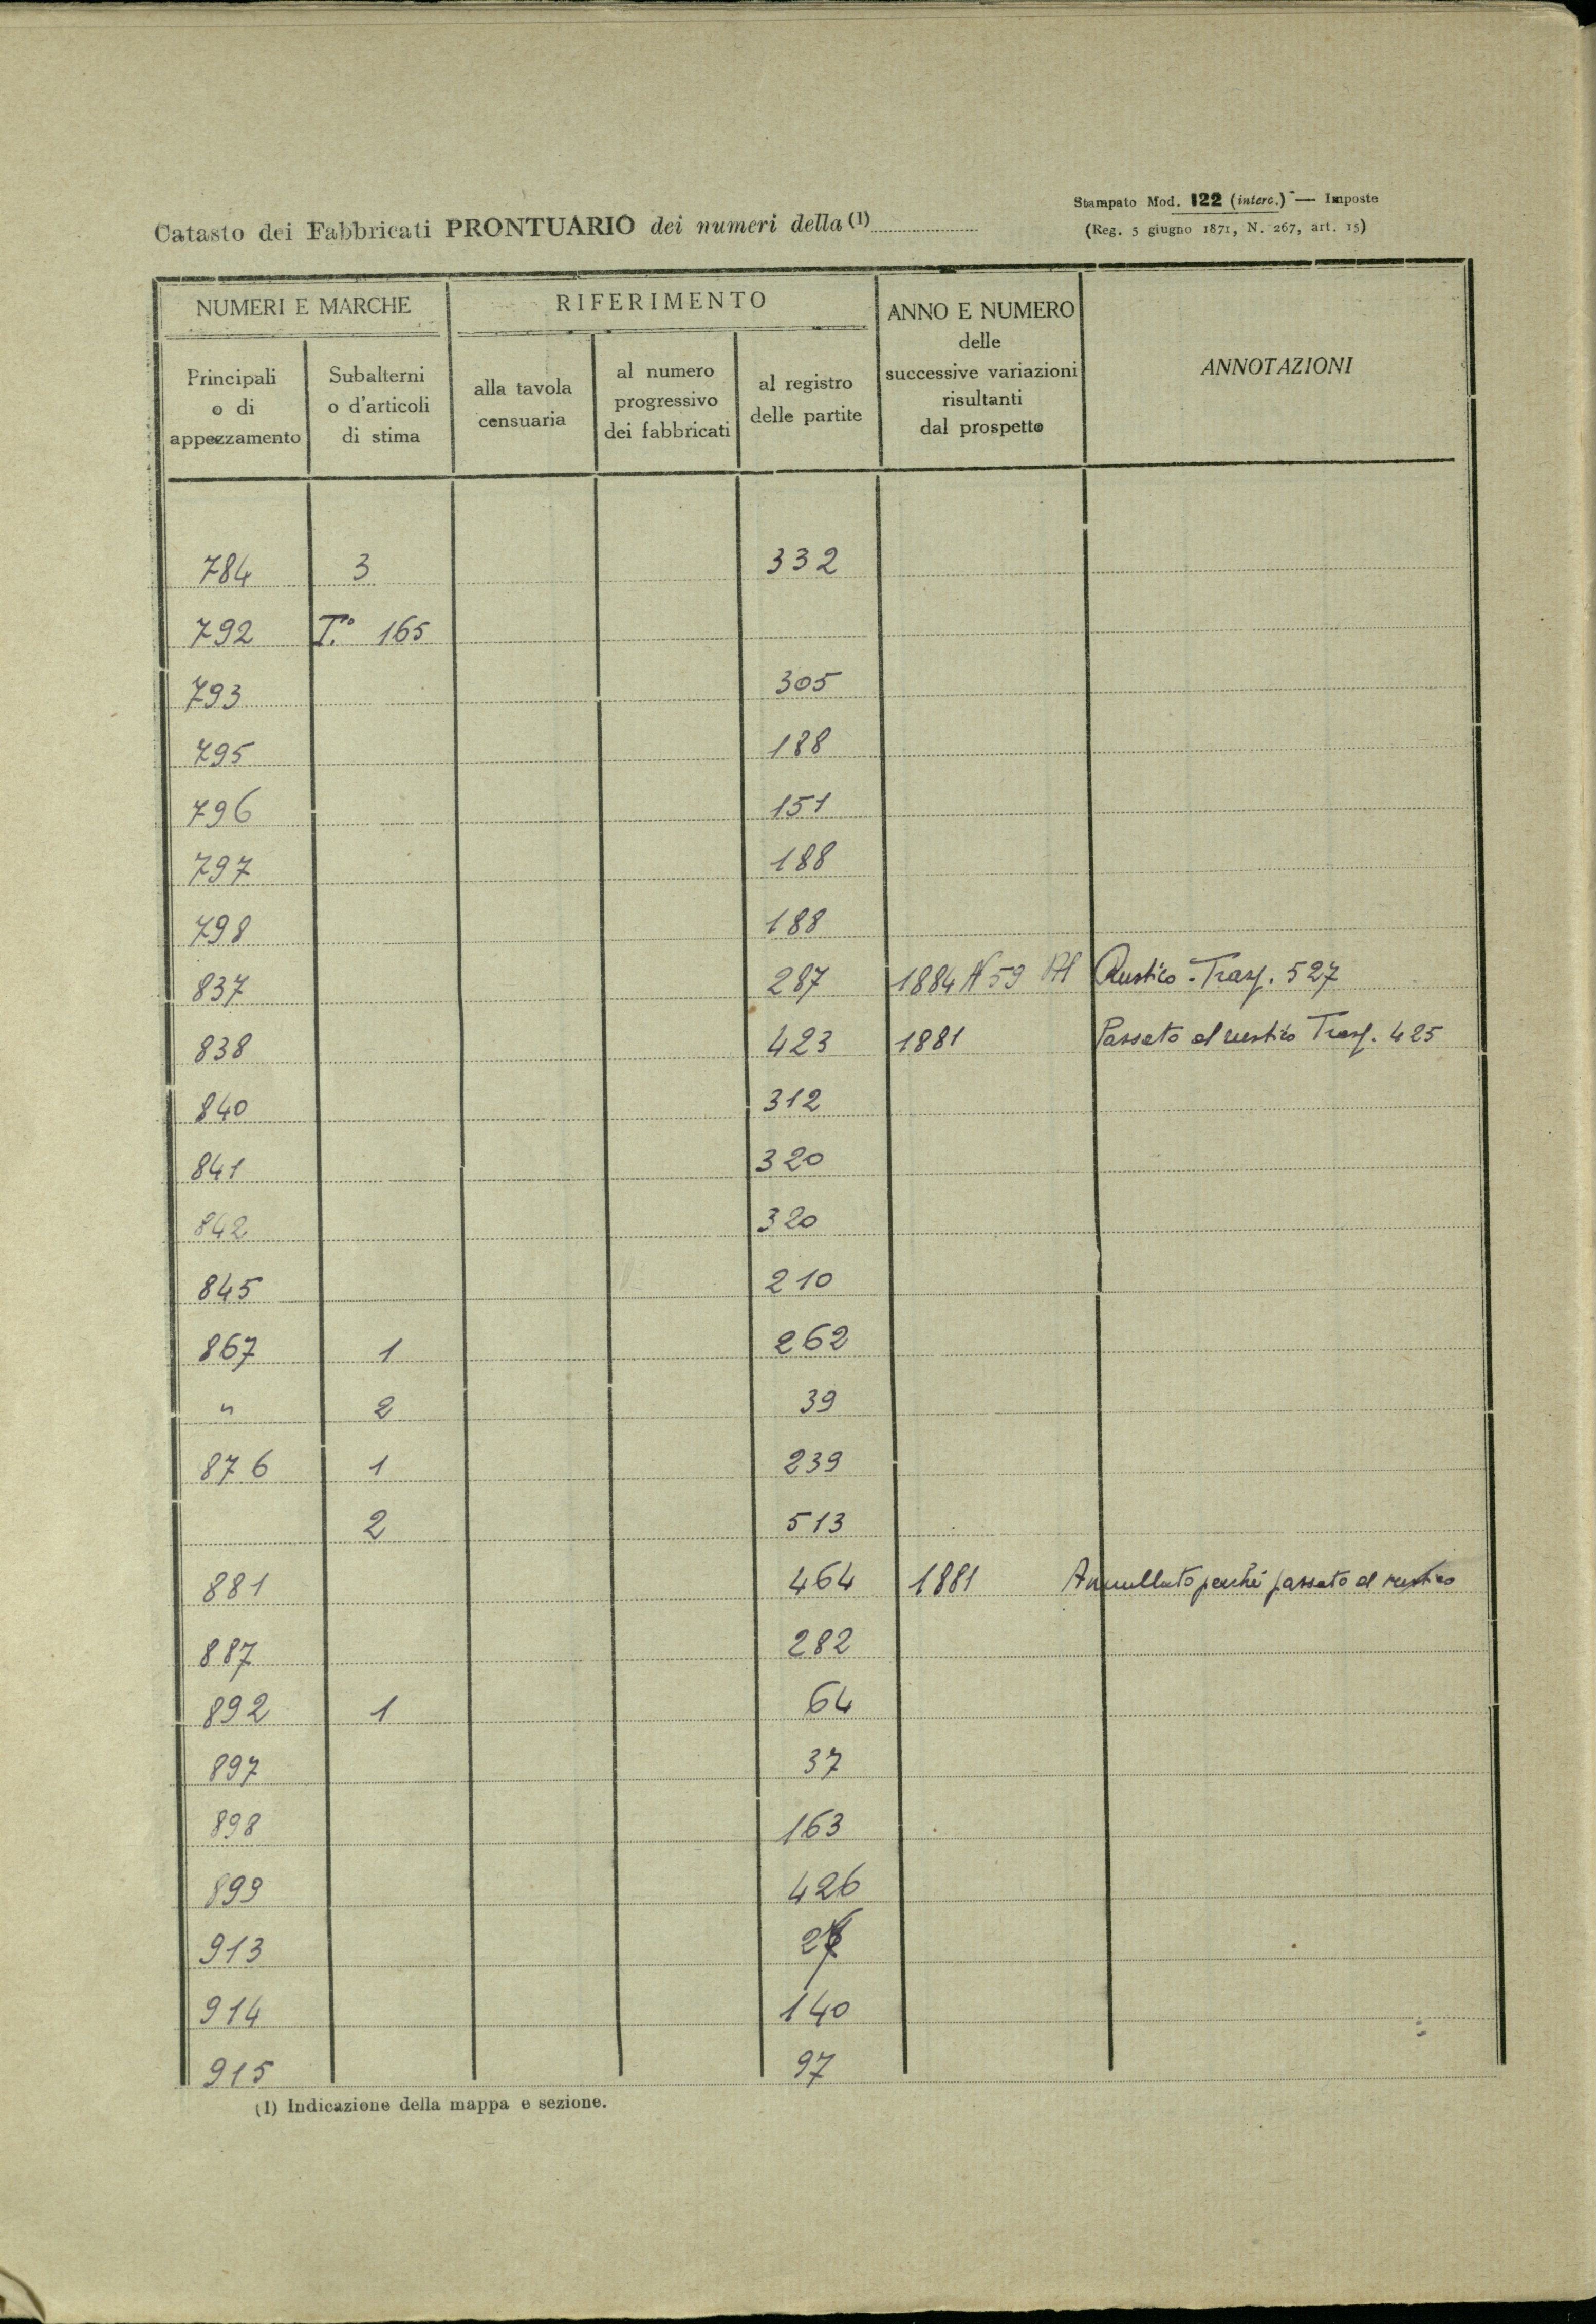 Stampato Mod. 122 (interc.) — Imposte
Catasto dei Fabbricati PRONTUARIO dei numeri della (1)
(Reg. 5 giugno 1871, N. 267, art. 15)
NUMERI E MARCHE
RIFERIMENTO
ANNO E NUMERO
delle
successive variazioni
risultanti
dal prospetto
ANNOTAZIONI
Principali
o di
appezzamento
Subalterni
o d'articoli
di stima
alla tavola
censuaria
al numero
progressivo
dei fabbricati
al registro
delle partite
784 3 332
792 T.° 165
793 305
795 188
796 151
797 188
798 188
837 287 1884 N 59 Rustico - Trasf. 527
838 423 1881 Passato al rustico Trasf. 425
840 312
841 320
842 320
845 210
867 1 262
" 2 39
876 1 239
2 513
881 464 1881 Annullato perché passato al rustico
887 282
892 1 64
897 37
898 163
899 426
913
914 140
915 97
(1) Indicazione della mappa e sezione.